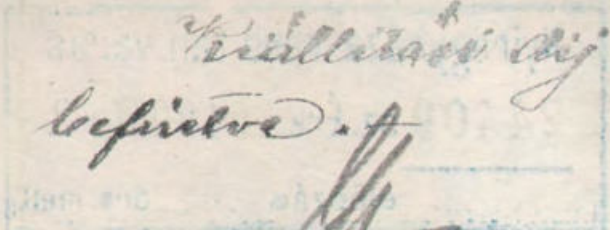 Kiállitási dij
befizetve.